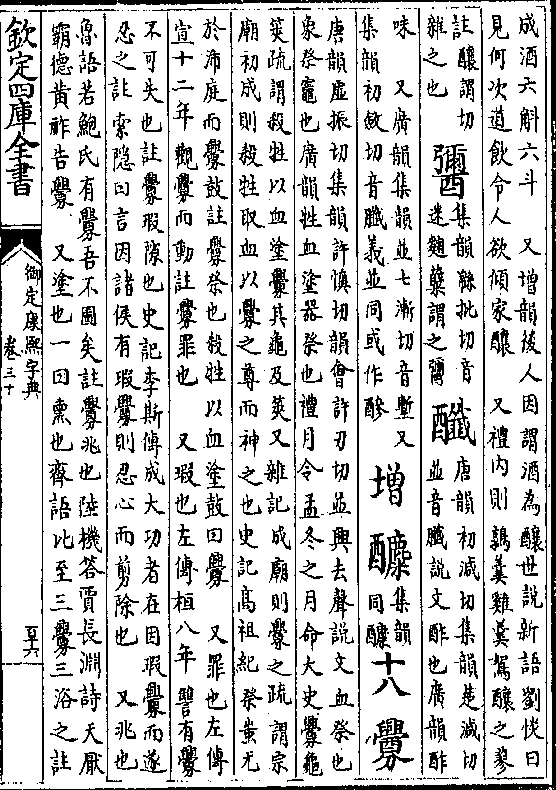 成酒六斛六斗　又增韻後人因謂酒為釀世說新語劉惔曰
見何次道飲令人欲傾家釀　又禮內則鶉羮雞羮鴽釀之蓼
註釀謂切
雜之也
𨣾
集韻緜批切音
迷麴糱謂之𨣾
醶
唐韻初減切集韻楚減切
並音𪒠說文酢也廣韻酢
味　又廣韻集韻並七漸切音塹又
集韻初斂切音𪒠義並同或作醦
增
䤍
集韻
同醿
十八
釁
唐韻虛振切集韻許愼切韻會許刃切並興去聲說文血祭也
象祭竈也廣韻牲血塗器祭也禮月令孟冬之月命大史釁龜
筴疏謂殺牲以血塗釁其龜及筴又雜記成廟則釁之疏謂宗
廟初成則殺牲取血以釁之尊而神之也史記髙祖紀祭蚩尤
於沛庭而釁鼓註釁祭也殺牲以血塗鼓曰釁　又罪也左傳
宣十二年觀釁而動註釁罪也　又瑕也左傳桓八年讐有釁
不可失也註釁瑕隙也史記李斯傳成大功者在因瑕釁而遂
忍之註索隱曰言因諸侯有瑕釁則忍心而剪除也　又兆也
魯語若鮑氏有釁吾不圖矣註釁兆也陸機答賈長淵詩天厭
霸德黃祚告釁　又塗也一曰熏也齊語比至三釁三浴之註
欽定四庫全書
御定康熙字典
卷三十
百六